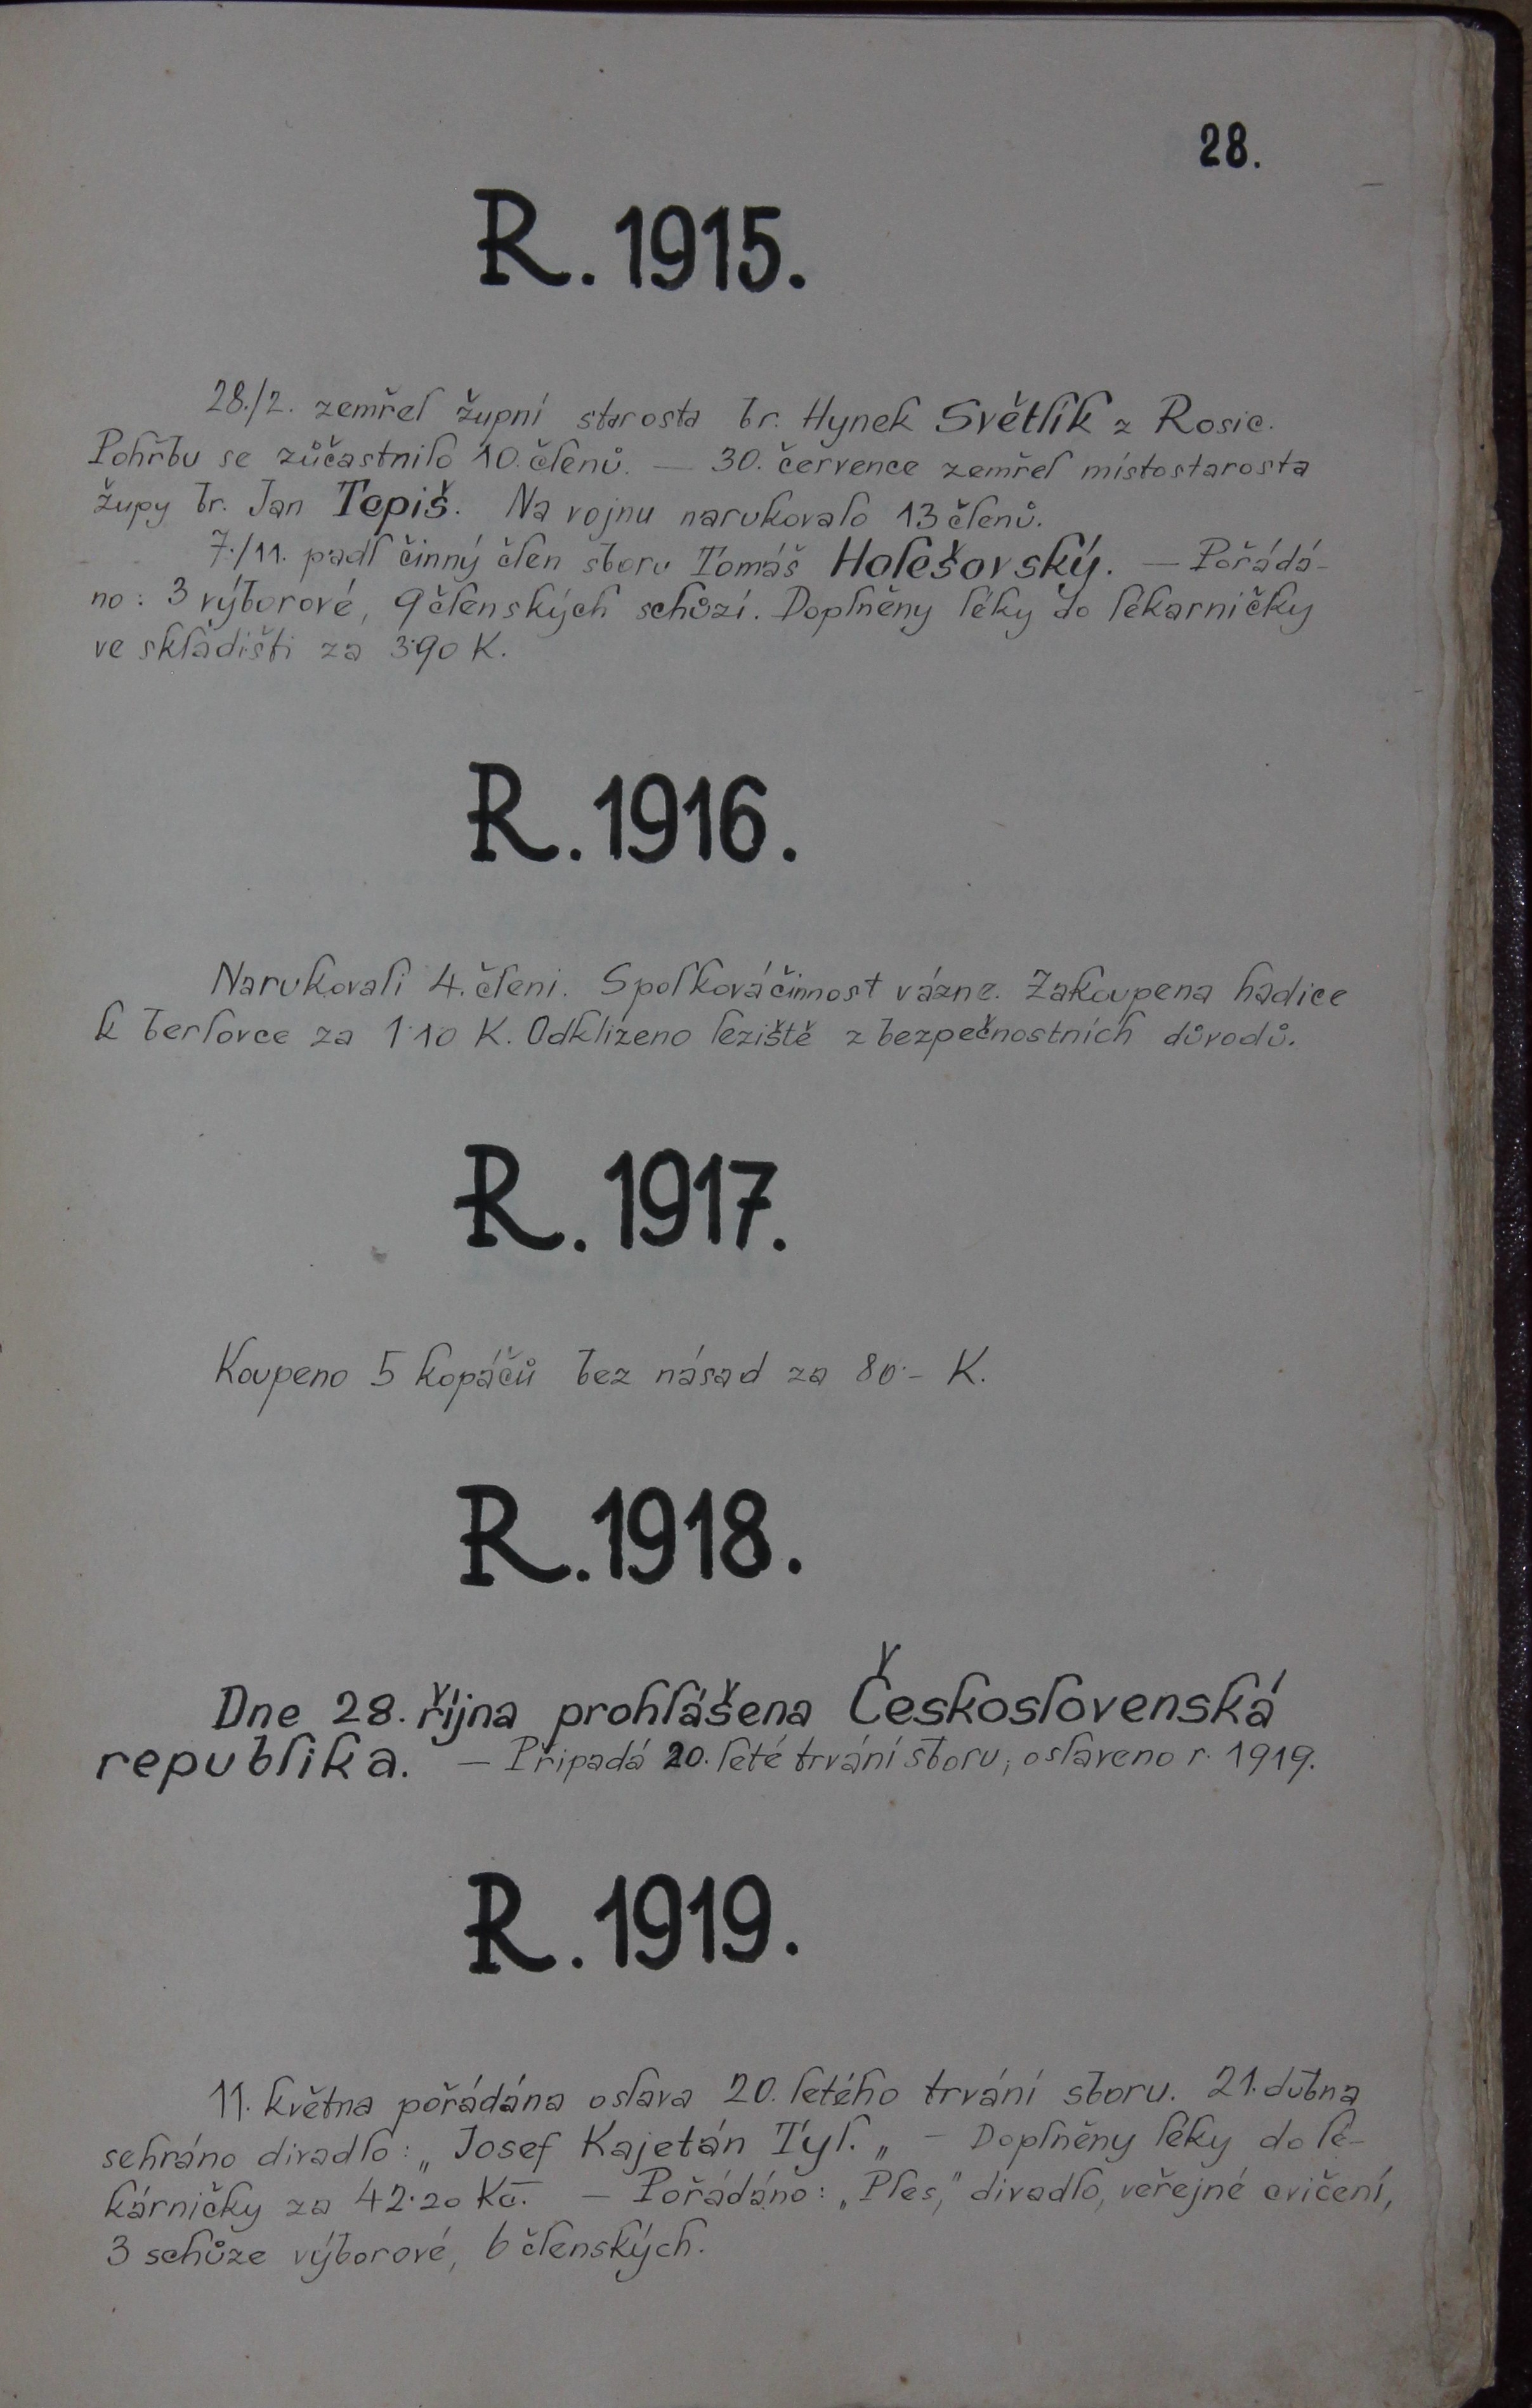 28.
R. 1915.
28./2. zemřel župní starosta br. Hynek Světlík z Rosic.
Pohřbu se zůčastnilo 10. členů. — 30. července zemřel místostarosta
župy br. Jan Tepiš. Na vojnu narukovalo 13 členů.
7./11. padl činný člen sboru Tomáš Holešovský. — Pořádá-
no: 3 výborové, 9 členských schůzí. Doplněny léky do lékarničky
ve skládišti za 3·90 K.
R. 1916.
Narukovali 4. členi. Spolková činnost vázne. Zakoupena hadice
k berlovce za 1·10 K. Odklizeno leziště z bezpečnostních důvodů.
R. 1917.
Koupeno 5 kopáčů bez násad za 80·- K.
R. 1918.
Dne 28. října prohlášena Československá
republika. — Připadá 20. leté trvání sboru, oslaveno r. 1919.
R. 1919.
11. května pořádána oslava 20. letého trvání sboru. 21. dubna
sehráno divadlo: „Josef Kajetán Tyl.„ — Doplněny léky do lé-
kárničky za 42·20 Kč. — Pořádáno: „Ples," divadlo, veřejné cvičení,
3 schůze výborové, 6 členských.